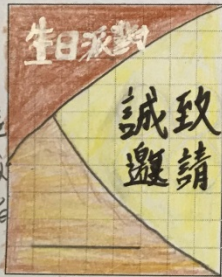 生日派對
誠致
邀請